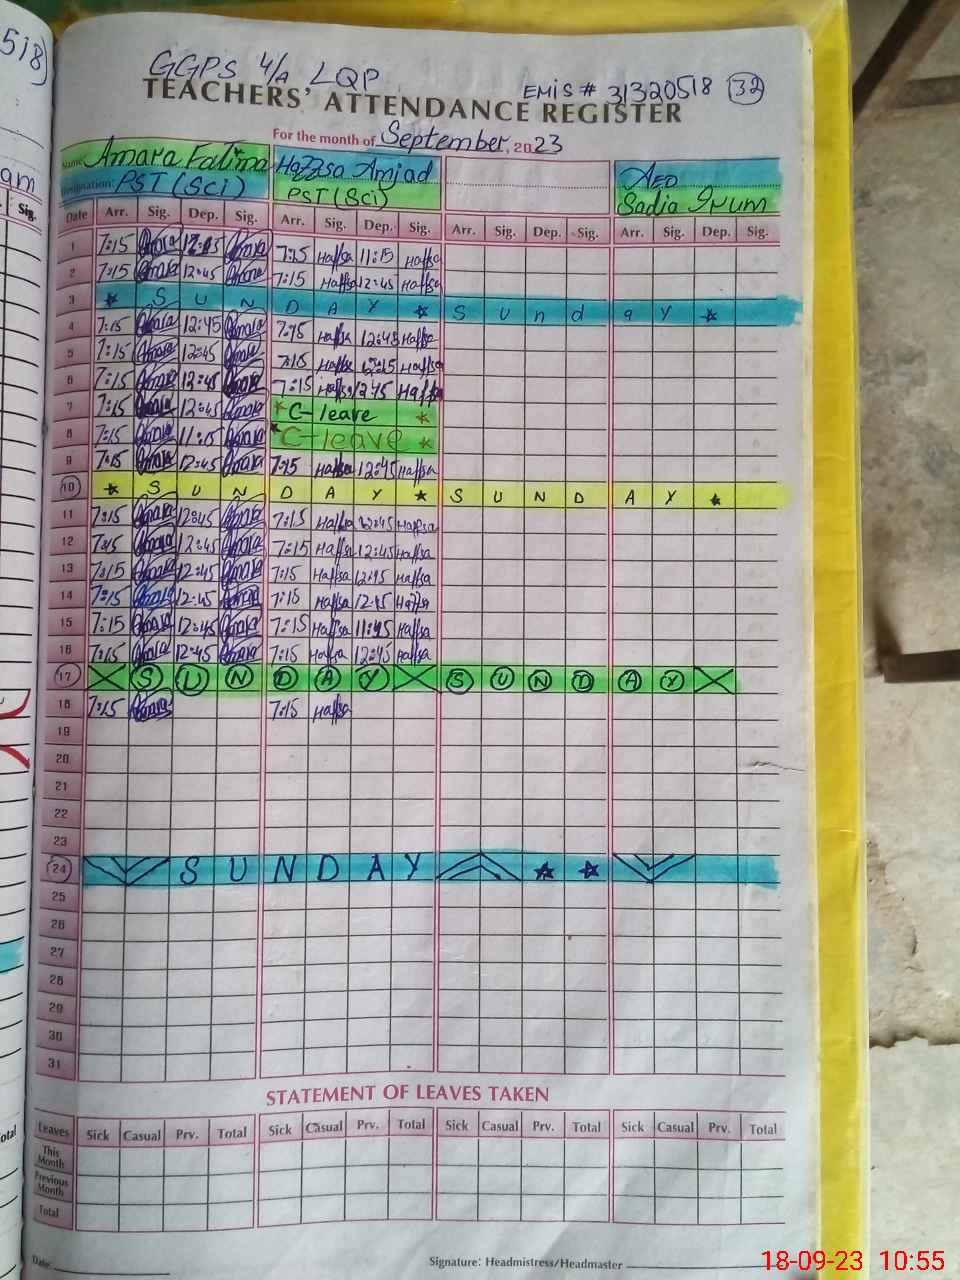 518)
am
Sig.
GGPS 4/A LQP
EMIS # 31320518 32
TEACHERS' ATTENDANCE REGISTER
For the month of September, 2023
Name: Amara Fatima Hafsa Amjad AEO
Designation: PST (Sci) PST (Sci) Sadia Inum
Date Arr. Sig. Dep. Sig. Arr. Sig. Dep. Sig. Arr. Sig. Dep. Sig. Arr. Sig. Dep. Sig.
1 7:15 Amara 7:15 Hafsa 11:15 Hafsa
2 7:15 Amara 12:45 Amara 7:15 Hafsa 12:45 Hafsa
3 * S U N D A Y * S U n d a Y *
4 7:15 Amara 12:45 Amara 7:15 Hafsa 12:45 Hafsa
5 7:15 Amara 12:45 Amara 7:15 Hafsa Hafsa
6 7:15 Amara 12:45 Amara 7:15 Hafsa 12:45 Hafsa
7 7:15 Amara 12:45 Amara * C-leave *
8 7:15 Amara 11:15 Amara * C-leave *
9 7:15 Amara 12:45 Amara 7:15 Hafsa 12:45 Hafsa
10 * S U N D A Y * S U N D A Y *
11 7:15 Amara 12:45 Amara 7:15 Hafsa 12:45 Hafsa
12 7:15 Amara 12:45 Amara 7:15 Hafsa 12:45 Hafsa
13 7:15 Amara 12:45 Amara 7:15 Hafsa 12:45 Hafsa
14 7:15 Amara 12:45 Amara 7:15 Hafsa 12:45 Hafsa
15 7:15 Amara 12:45 Amara 7:15 Hafsa 11:45 Hafsa
16 7:15 Amara 12:45 Amara 7:15 Hafsa 12:45 Hafsa
17 S U N D A Y S U N D A Y
18 7:15 Amara 7:15 Hafsa
19
20
21
22
23
24 S U N D A Y * *
25
26
27
28
29
30
31
STATEMENT OF LEAVES TAKEN
Leaves Sick Casual Prv. Total Sick Casual Prv. Total Sick Casual Prv. Total Sick Casual Prv. Total
This Month
Previous Month
Total
Date:
Signature: Headmistress/Headmaster
18-09-23 10:55